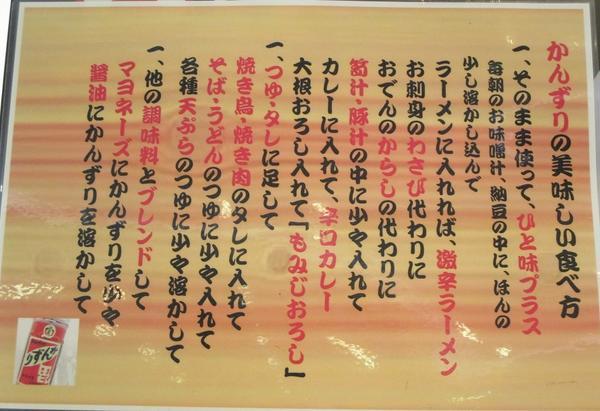 かんずりの美味しい食べ方
一、そのまま使って、ひと味プラス
毎朝のお味噌汁、納豆の中に、ほんの
少し溶かし込んで
ラーメンに入れれば、激辛ラーメン
お刺身のわさび代わりに
おでんのからしの代わりに
筍汁・豚汁の中に少々入れて
カレーに入れて、辛口カレー
大根おろし入れて「もみじおろし」
一、つゆ・タレに足して
焼き鳥・焼き肉のタレに入れて
そば・うどんのつゆに少々入れて
各種天ぷらのつゆに少々溶かして
一、他の調味料とブレンドして
マヨネーズにかんずりを少々
醤油にかんずりを溶かして
かんずり